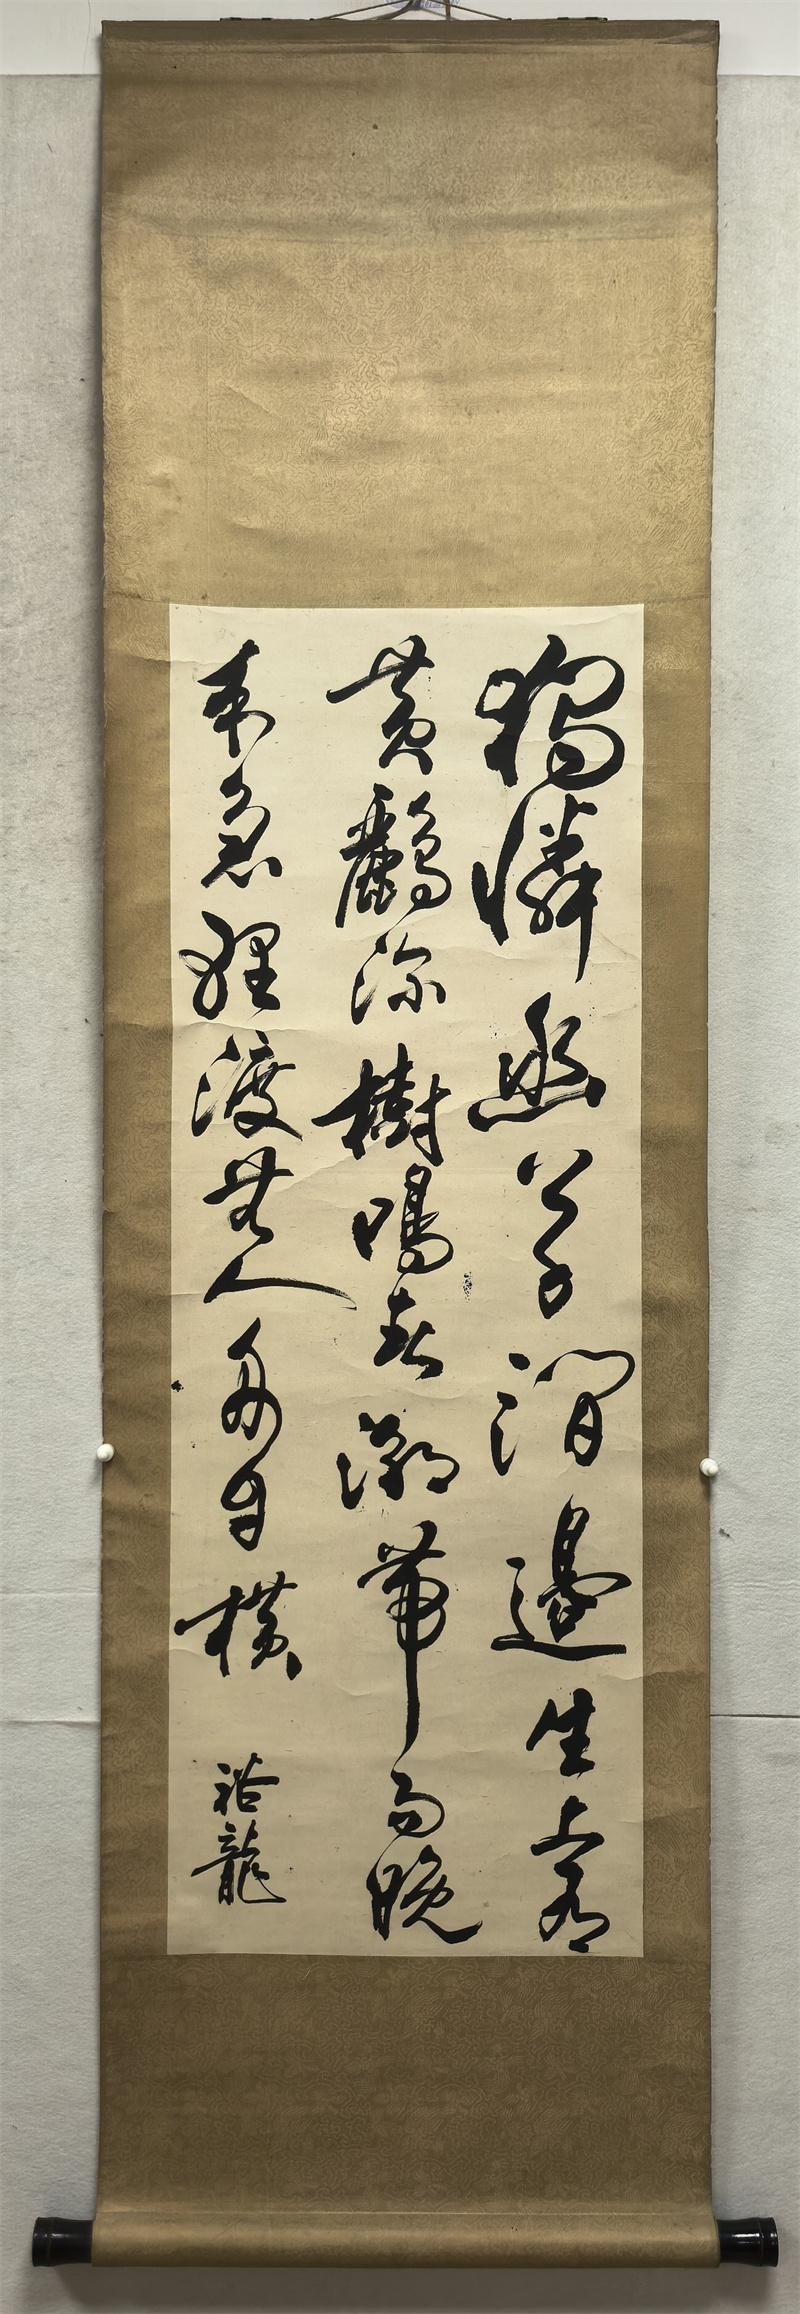 獨憐幽草澗邊生上有
黃鸝深樹鳴春潮帶雨晚
來急野渡無人舟自橫
裕龍